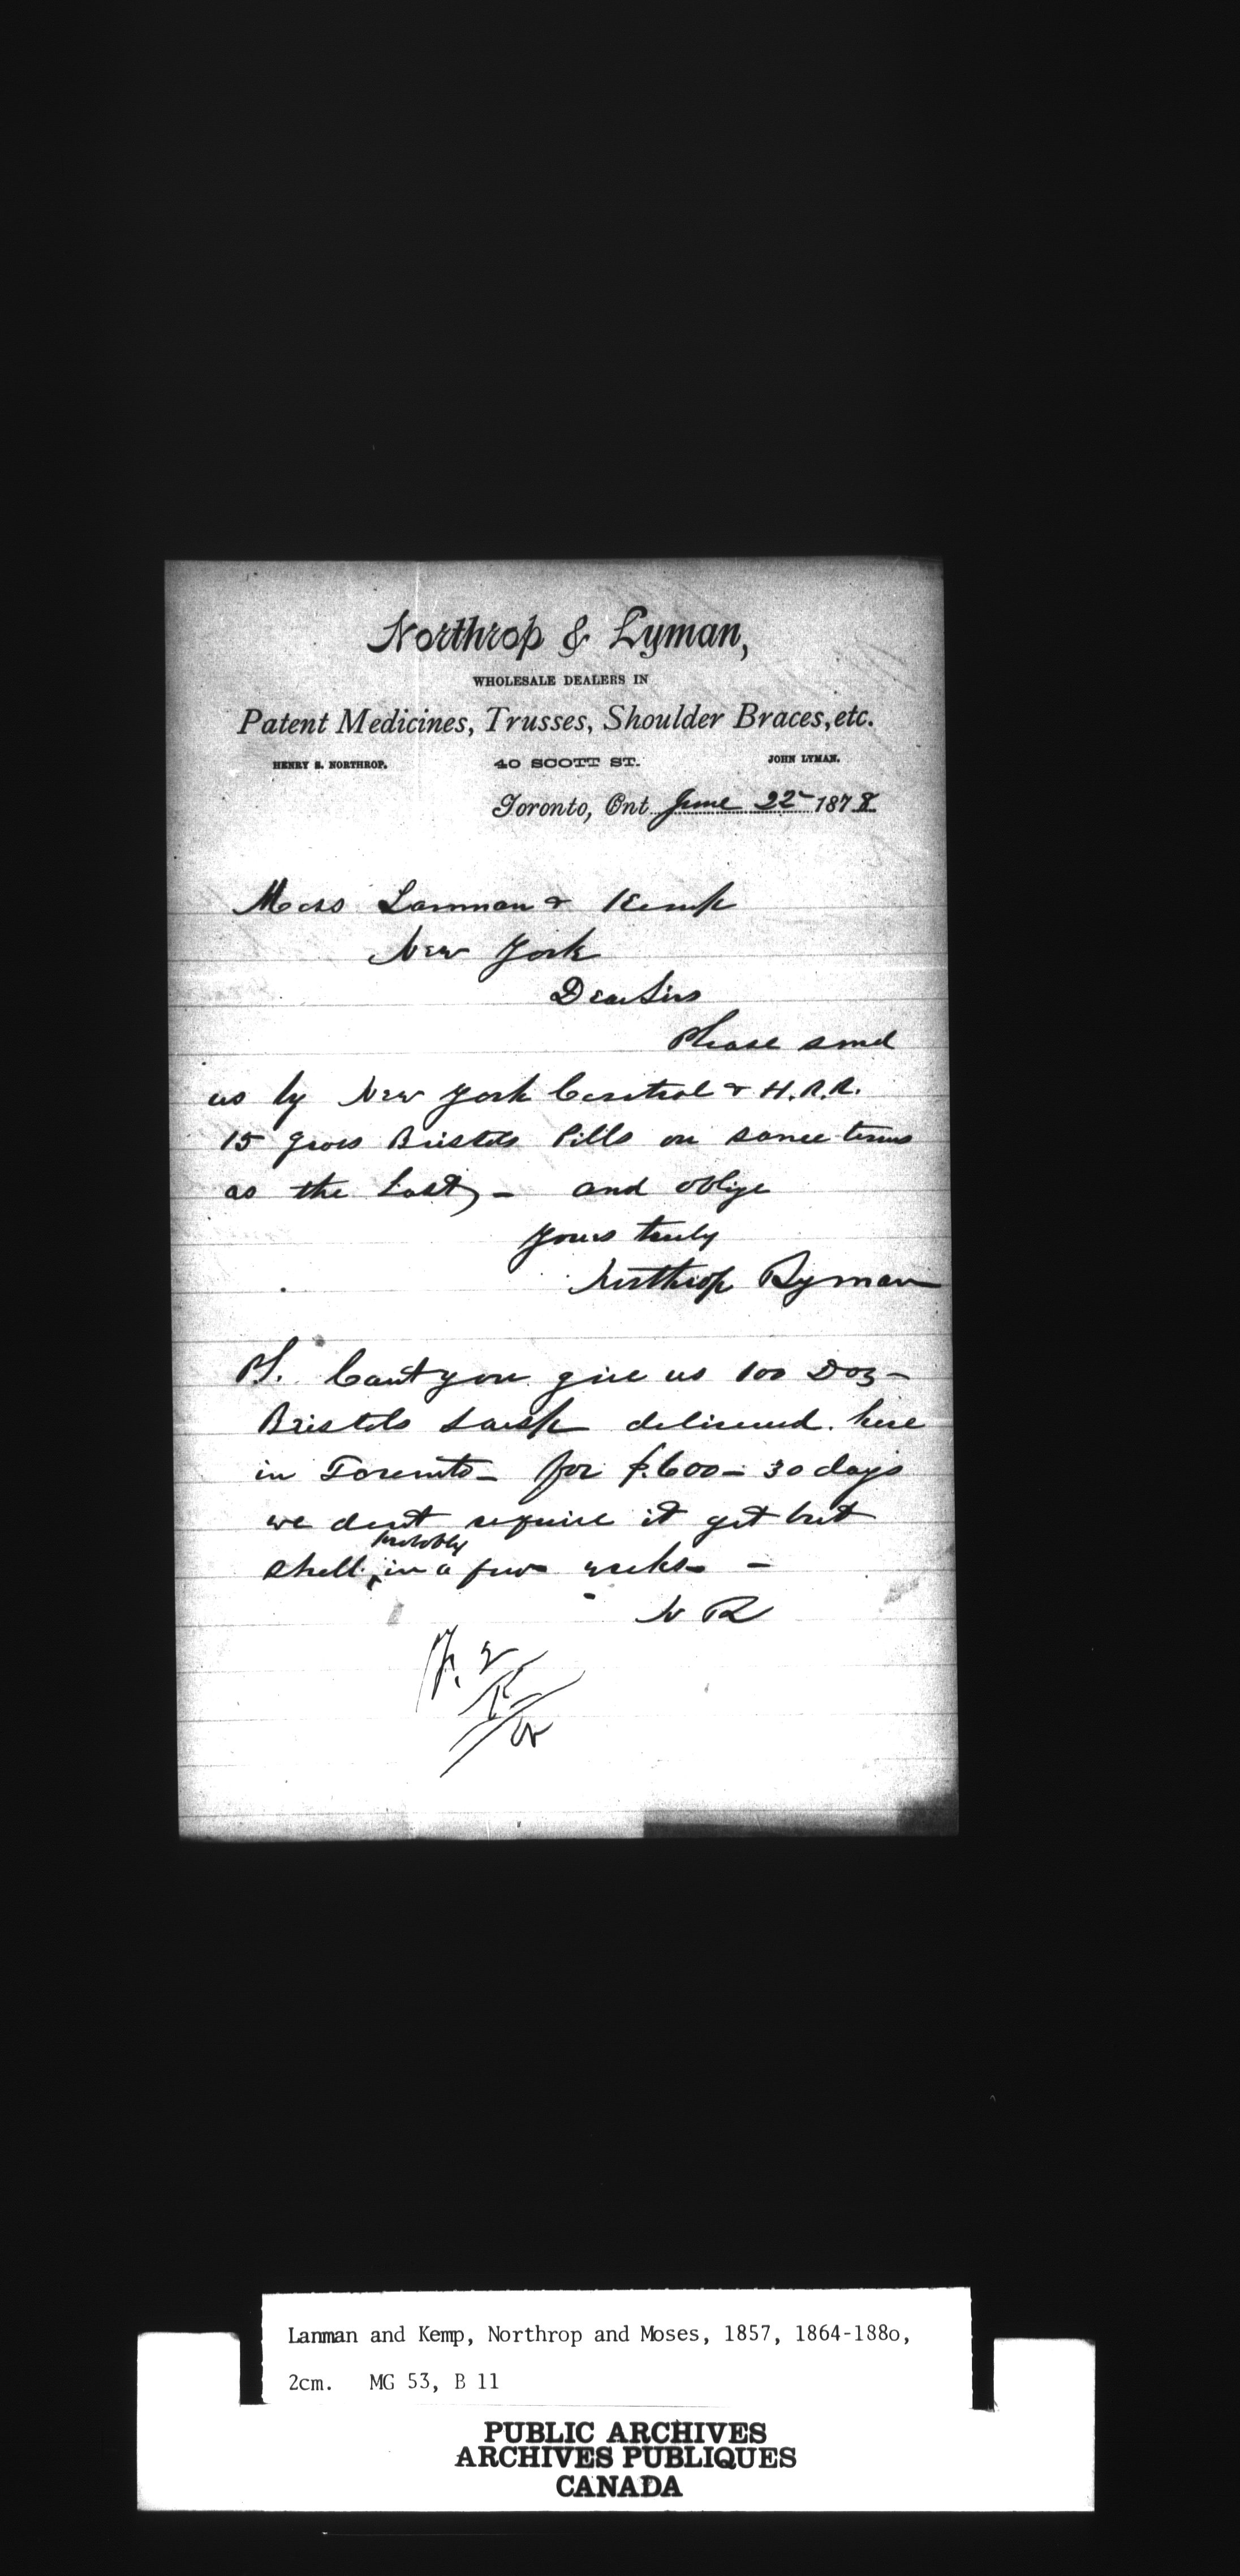 Northrop & Lyman,
WHOLESALE DEALERS IN
Patent Medicines, Trusses, Shoulder Braces, etc.
HENRY S. NORTHROP. 40 SCOTT ST. JOHN LYMAN.
Toronto, Ont June 22 1878
Mess Lanman & Kemp
New York
Dear Sirs
Please send
us by New York Central & H.R.R.
15 gross Bristols Pills on same terms
as the last, - and oblige
Yours truly
Northrop & Lyman
PS. Cant you give us 100 Doz -
Bristols Sarsp delivered here
in Toronto - for $600 - 30 days
we dont require it yet but
shall probably in a few weeks -
N & L
Lanman and Kemp, Northrop and Moses, 1857, 1864-188o,
2cm. MG 53, B 11
PUBLIC ARCHIVES
ARCHIVES PUBLIQUES
CANADA